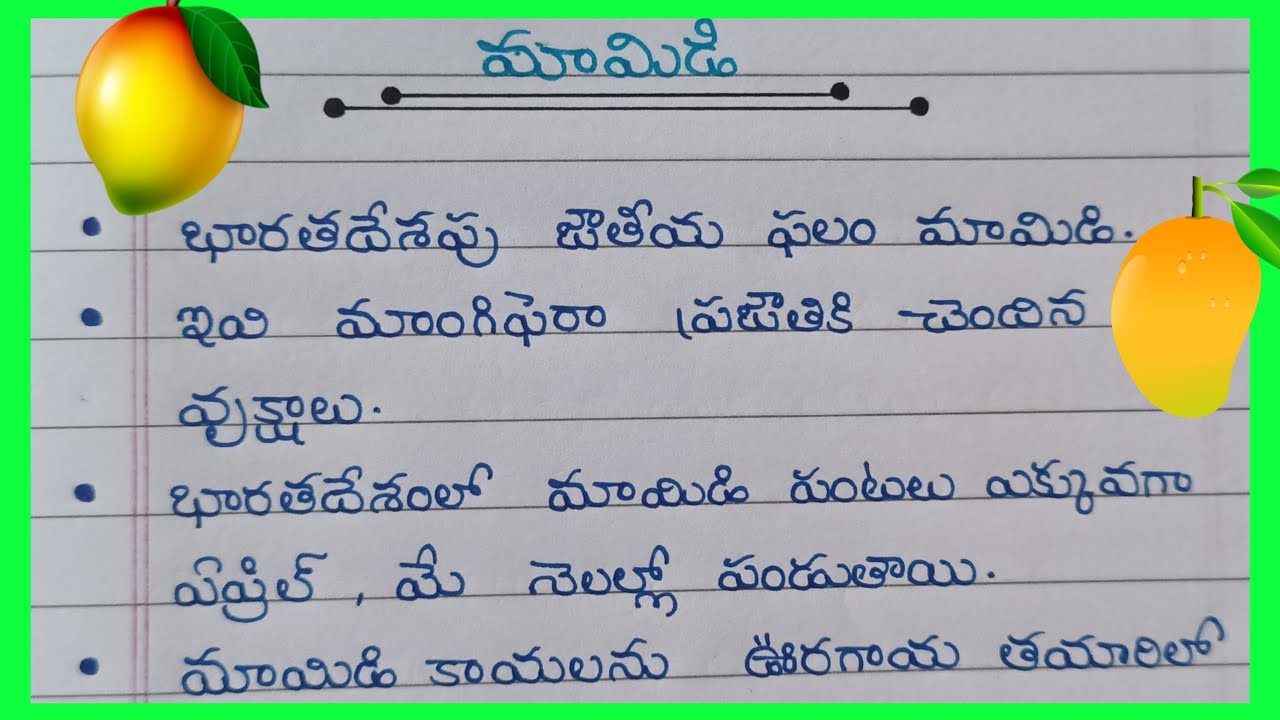 మామిడి
• భారతదేశపు జాతీయ ఫలం మామిడి.
• ఇవి మాంగిఫెరా ప్రజాతికి చెందిన
వృక్షాలు.
• భారతదేశంలో మామిడి పంటలు ఎక్కువగా
ఏప్రిల్ , మే నెలల్లో పండుతాయి.
• మామిడి కాయలను ఊరగాయ తయారిలో